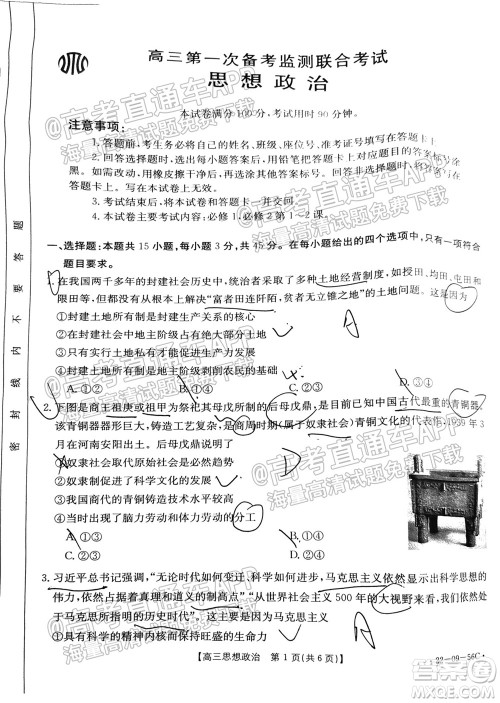 高三第一次备考监测联合考试
思想政治
本试卷满分100分,考试用时90分钟。
注意事项:
1.答题前,考生务必将自己的姓名、班级、座位号、准考证号填写在答题卡上。
2.回答选择题时,选出每小题答案后,用铅笔把答题卡上
如需改动,用橡皮擦干净后,再选涂其他答案标号。回答非选择题时,将答案写在答
题卡上。写在本试卷上无效。
3.考试结束后,将本试卷和答题卡一并交回。
4.本试卷主要考试内容:必修1,必修2第1~2课。
一、选择题:本题共15小题,每小题3分,共45分。在每小题给出的四个选项中,只有一项是符合
题目要求。
1.在我国两千多年的封建社会历史中,统治者采取了多种土地经营制度,如井田、均田、屯田和
限田等,但仍然没有解决“富者田连阡陌,贫者无立锥之地”的土地问题。这是因为
①在封建社会中地主阶级占有绝大部分土地
②封建土地所有制是封建生产关系的核心
③实行土地私有才能更好地促进生产力发展
④封建地主阶级通过土地剥削农民
A.①②
B.①③
C.②④
D.③④
A
2.下图是商王祖庚或祖甲为祭祀其母所制的后母戊鼎,是目前已知中国古代最重的青铜器。
该青铜器器型巨大,铸造工艺复杂,是商周时期(属于奴隶社会)青铜文化的代表作,1939年3
月在河南安阳出土。后母戊鼎说明了
①奴隶社会取代原始社会是历史的进步
②奴隶制促进了科学文化的发展
③我国商代的青铜铸造技术水平较高
④当时出现了脑力劳动与体力劳动的分工
A.①②
B.①③
C.②④
D.③④
3.习近平总书记强调,“无论时代如何变迁、科学如何进步,马克思主义依然显示出科学思想的
伟力,依然占据着真理和道义的制高点”“从世界社会主义500年的大视野来看,我们依然处
于马克思主义所指明的历史时代”。这是因为
A.科学的精神永远能保持旺盛的生命力
【高三思想政治 第1页(共6页)】
22-09-56C
密封线内不要答题
@高考直通车APP
海量高清试题免费下载
@高考直通车APP
海量高清试题免费下载
@高考直通车APP
海量高清试题免费下载